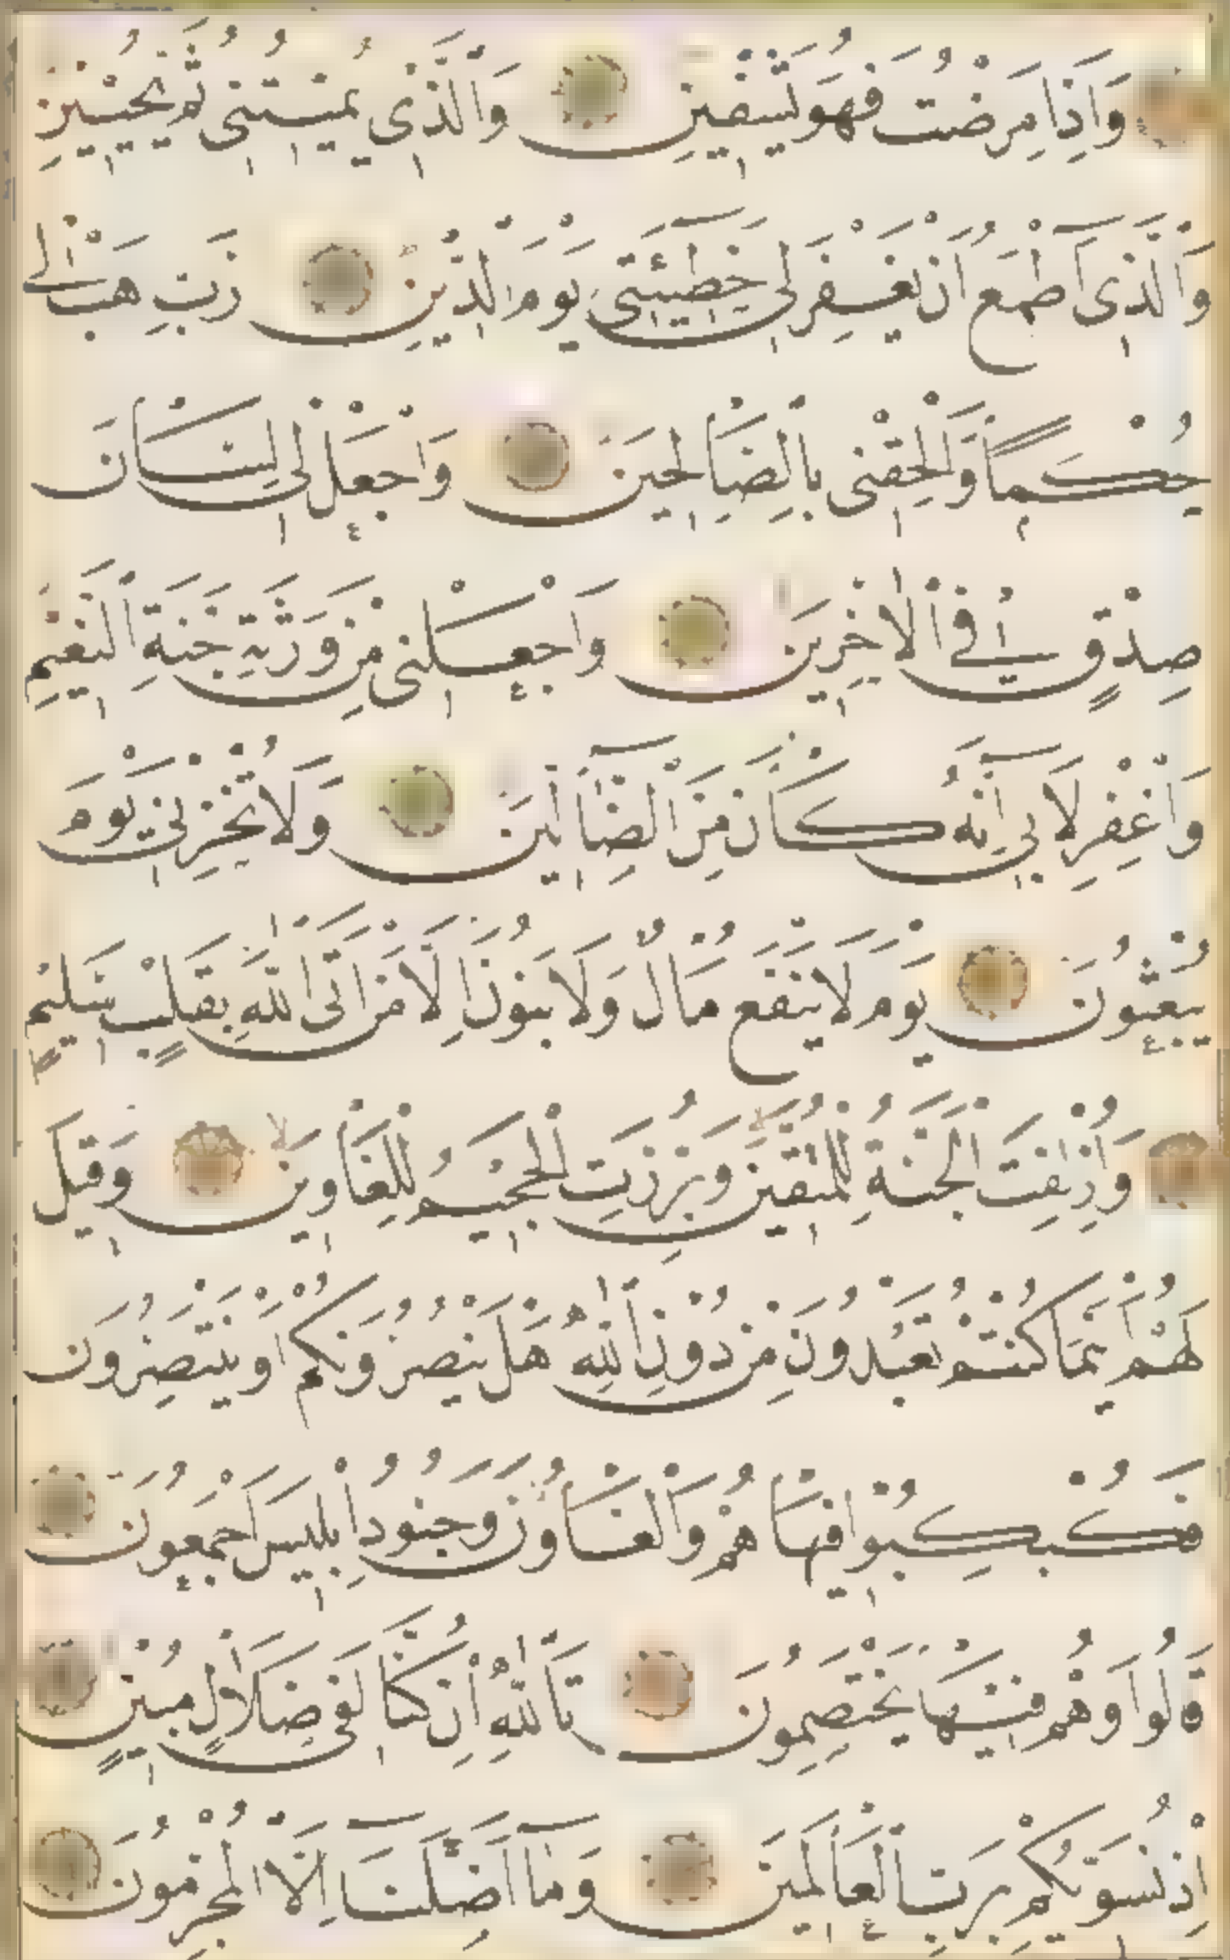 وَاِذَا مَرِضْتُ فَهُوَ يَشْفِينِ وَالَّذِى يُمِيتُنِى ثُمَّ يُحْيِينِ
وَالَّذِى اَطْمَعُ اَنْ يَغْفِرَ لِى خَطِيئَتِى يَوْمَ الدِّينِ رَبِّ هَبْ لِى
حُكْمًا وَاَلْحِقْنِى بِالصَّالِحِينَ وَاجْعَلْ لِى لِسَانَ
صِدْقٍ فِى الْاٰخِرِينَ وَاجْعَلْنِى مِنْ وَرَثَةِ جَنَّةِ النَّعِيمِ
وَاغْفِرْ لِاَبِى اِنَّهُ كَانَ مِنَ الضَّالِّينَ وَلَا تُخْزِنِى يَوْمَ
يُبْعَثُونَ يَوْمَ لَا يَنْفَعُ مَالٌ وَلَا بَنُونَ اِلَّا مَنْ اَتَى اللّٰهَ بِقَلْبٍ سَلِيمٍ
وَاُزْلِفَتِ الْجَنَّةُ لِلْمُتَّقِينَ وَبُرِّزَتِ الْجَحِيمُ لِلْغَاوِينَ وَقِيلَ
لَهُمْ اَيْنَمَا كُنْتُمْ تَعْبُدُونَ مِنْ دُونِ اللّٰهِ هَلْ يَنْصُرُونَكُمْ اَوْ يَنْتَصِرُونَ
فَكُبْكِبُوا فِيهَا هُمْ وَالْغَاوُنَ وَجُنُودُ اِبْلِيسَ اَجْمَعُونَ
قَالُوا وَهُمْ فِيهَا يَخْتَصِمُونَ تَاللّٰهِ اِنْ كُنَّا لَفِى ضَلَالٍ مُبِينٍ
اِذْ نُسَوِّيكُمْ بِرَبِّ الْعَالَمِينَ وَمَا اَضَلَّنَا اِلَّا الْمُجْرِمُونَ